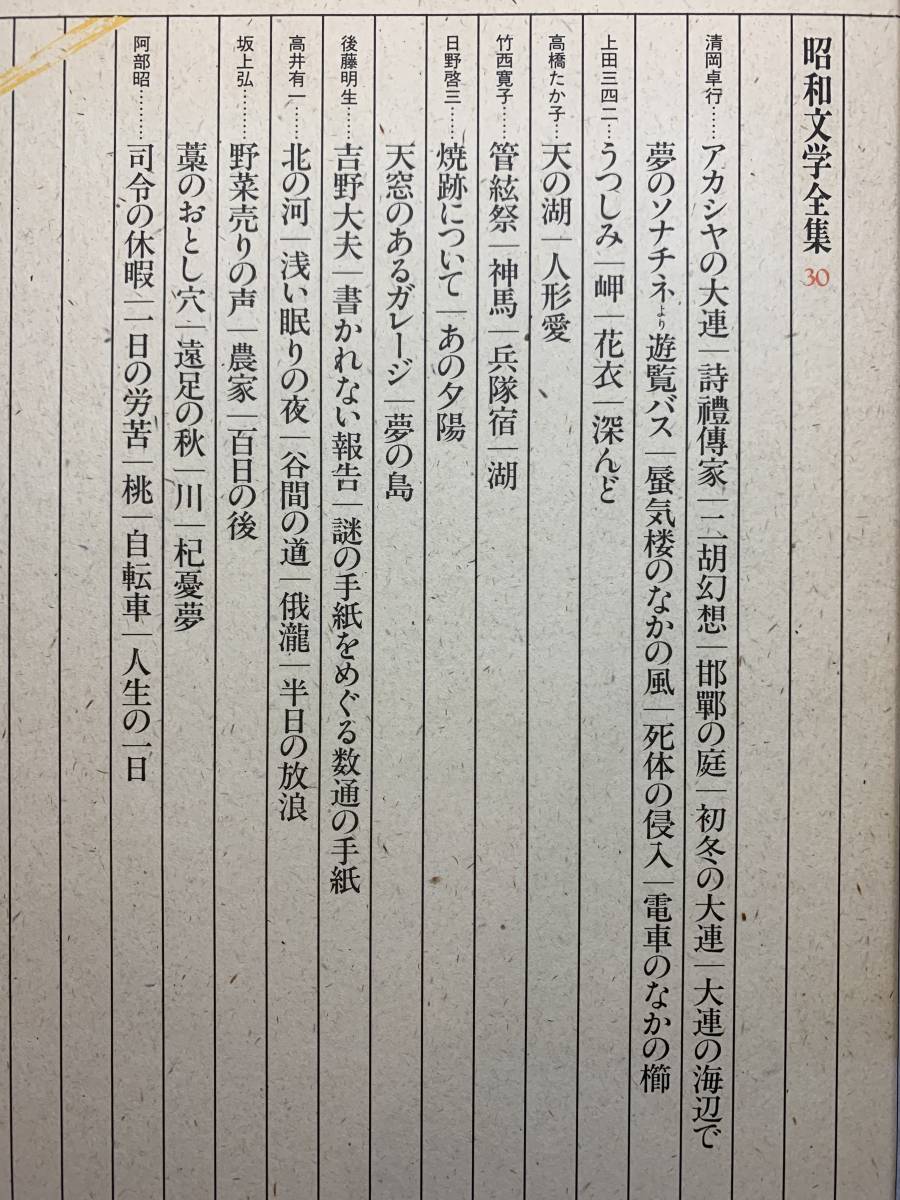 昭和文学全集 30
清岡卓行……アカシヤの大連｜詩禮傳家｜二胡幻想｜邯鄲の庭｜初冬の大連｜大連の海辺で
夢のソナチネより遊覧バス｜蜃気楼のなかの風｜死体の侵入｜電車のなかの櫛
上田三四二…うつしみ｜岬｜花衣｜深んど
高橋たか子…天の湖｜人形愛
竹西寛子……管絃祭｜神馬｜兵隊宿｜湖
日野啓三……焼跡について｜あの夕陽
天窓のあるガレージ｜夢の島
後藤明生……吉野大夫｜書かれない報告｜謎の手紙をめぐる数通の手紙
高井有一……北の河｜浅い眠りの夜｜谷間の道｜俄瀧｜半日の放浪
坂上弘………野菜売りの声｜農家｜百日の後
藁のおとし穴｜遠足の秋｜川｜杞憂夢
阿部昭………司令の休暇｜一日の労苦｜桃｜自転車｜人生の一日